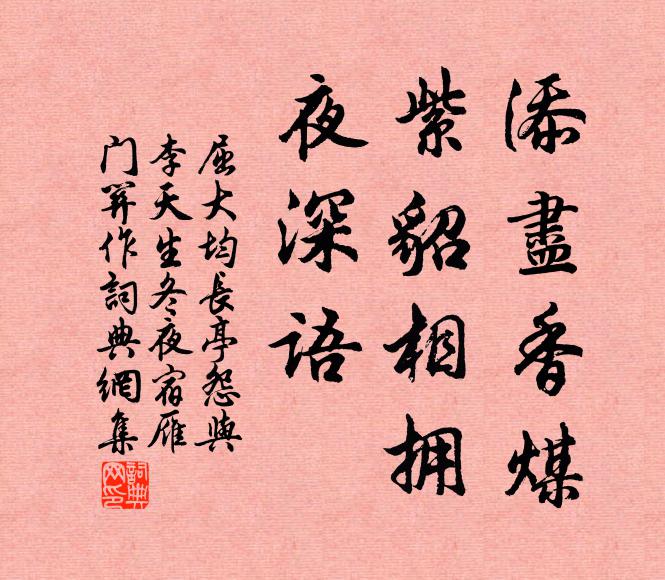 添盡香煤
紫貂相拥
夜深语
屈大均長亭怨與
李天生冬夜宿雁
门關作詞典網集
詞典
网印